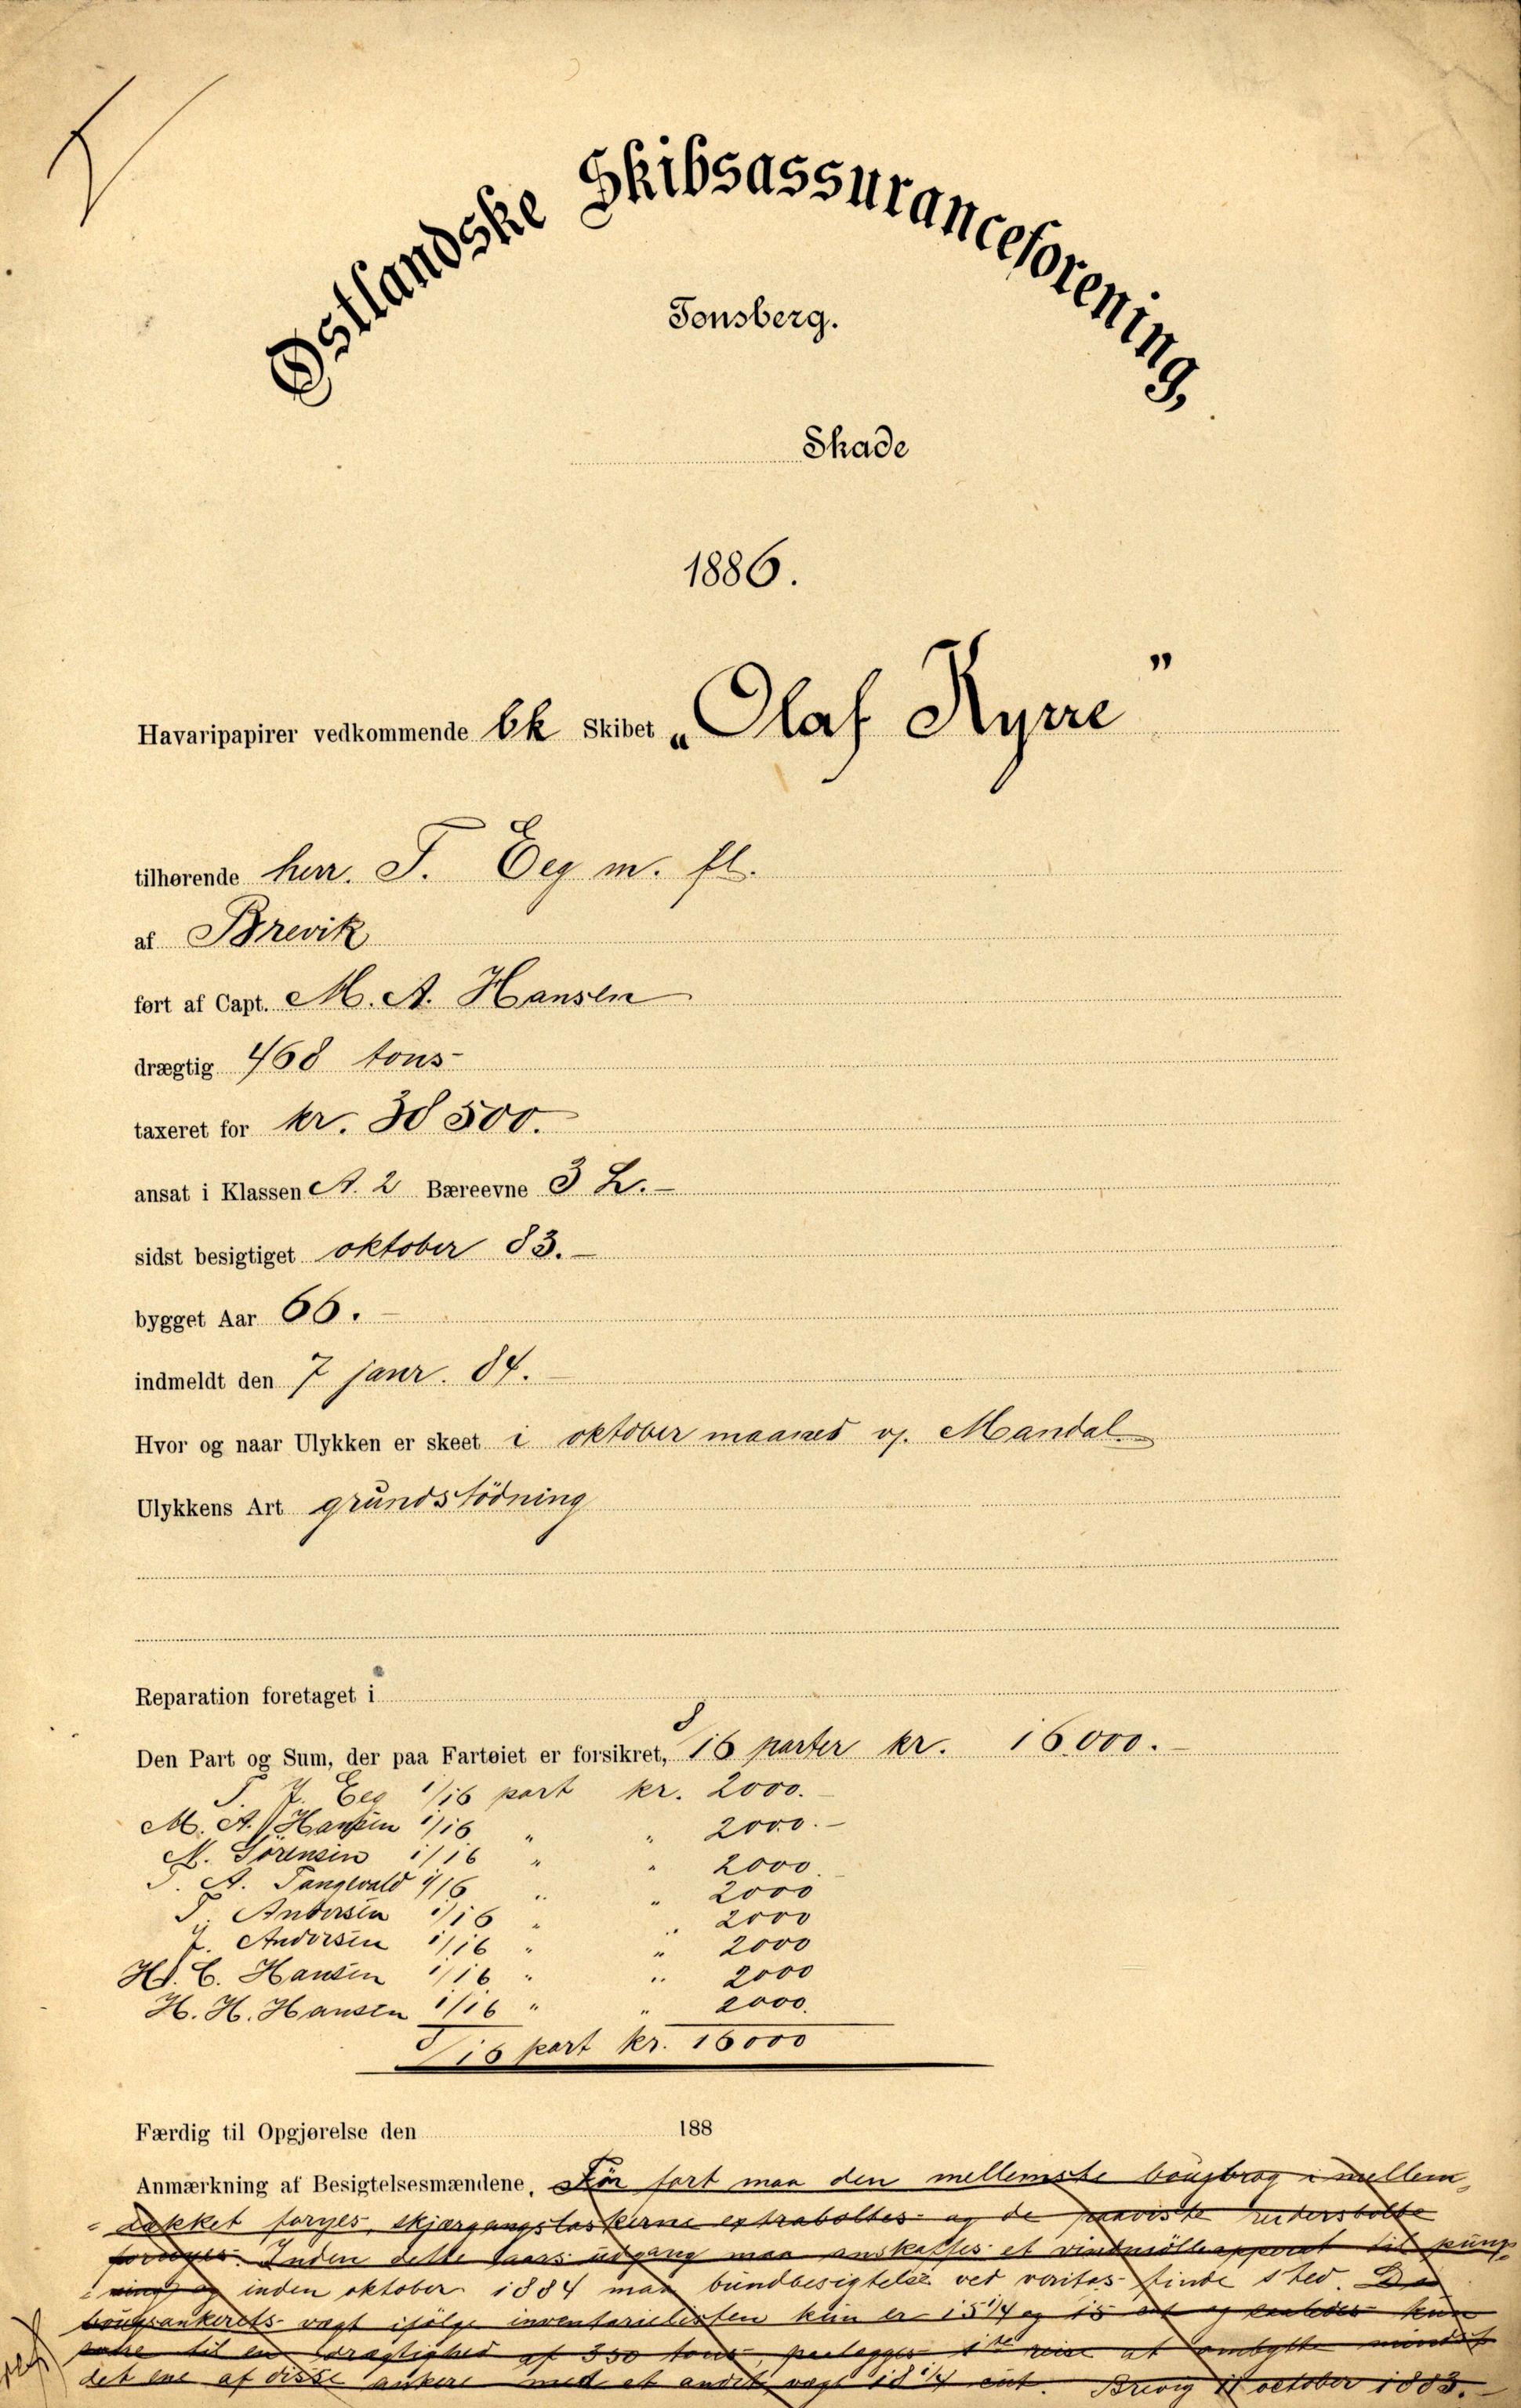 Østlandske Skibsassuranceforening,
Tønsberg.
Skade
1886.
Havaripapirer vedkommende bk Skibet „Olaf Kyrre”
tilhørende herr. T. Eeg m. fl.
af Brevik
ført af Capt. M. A. Hansen
drægtig 468 tons-
taxeret for kr. 38 500.
ansat i Klassen A. 2 Bæreevne 3 L.-
sidst besigtiget oktober 83.-
bygget Aar 66.-
indmeldt den 7 janr. 84.-
Hvor og naar Ulykken er skeet i oktober maaned v. Mandal
Ulykkens Art grundstödning
Reparation foretaget i
Den Part og Sum, der paa Fartøiet er forsikret, 8/16 parter kr. 16000.-
T. J. Eeg 1/16 part kr. 2000.-
M. A. Hansen 1/16 " " 2000.-
N. Sörensen 1/16 " " 2000.
T. A. Tangevald 1/16 " " 2000
T. Andersen 1/16 " " 2000
J. Andersen 1/16 " " 2000
H. C. Hansen 1/16 " " 2000
H. H. Hansen 1/16 " " 2000.
8/16 part kr. 16000
Færdig til Opgjørelse den 188
Anmærkning af Besigtelsesmændene. För fart maa den mellemste bougbrog i mellem
dækket fornyes, skjærgangslaskerne extraboltes og de paaviste rudersbolte
fornyes. Inden dette aars udgang maa anskaffes et vindmölleapparat til pump-
ning og inden oktober 1884 maa bundbesigtelse ved veritas finde sted. Da
bougankerets vægt ifölge inventarielisten kun er 15 1/4 og 15 cvt og saaledes kun
til en drægtighed af 350 tons, paalægges 1ste reise at ombytte mindst
det ene af disse ankere med et andet, vægt 18 1/4 cvt. Brevig 11 october 1883.-